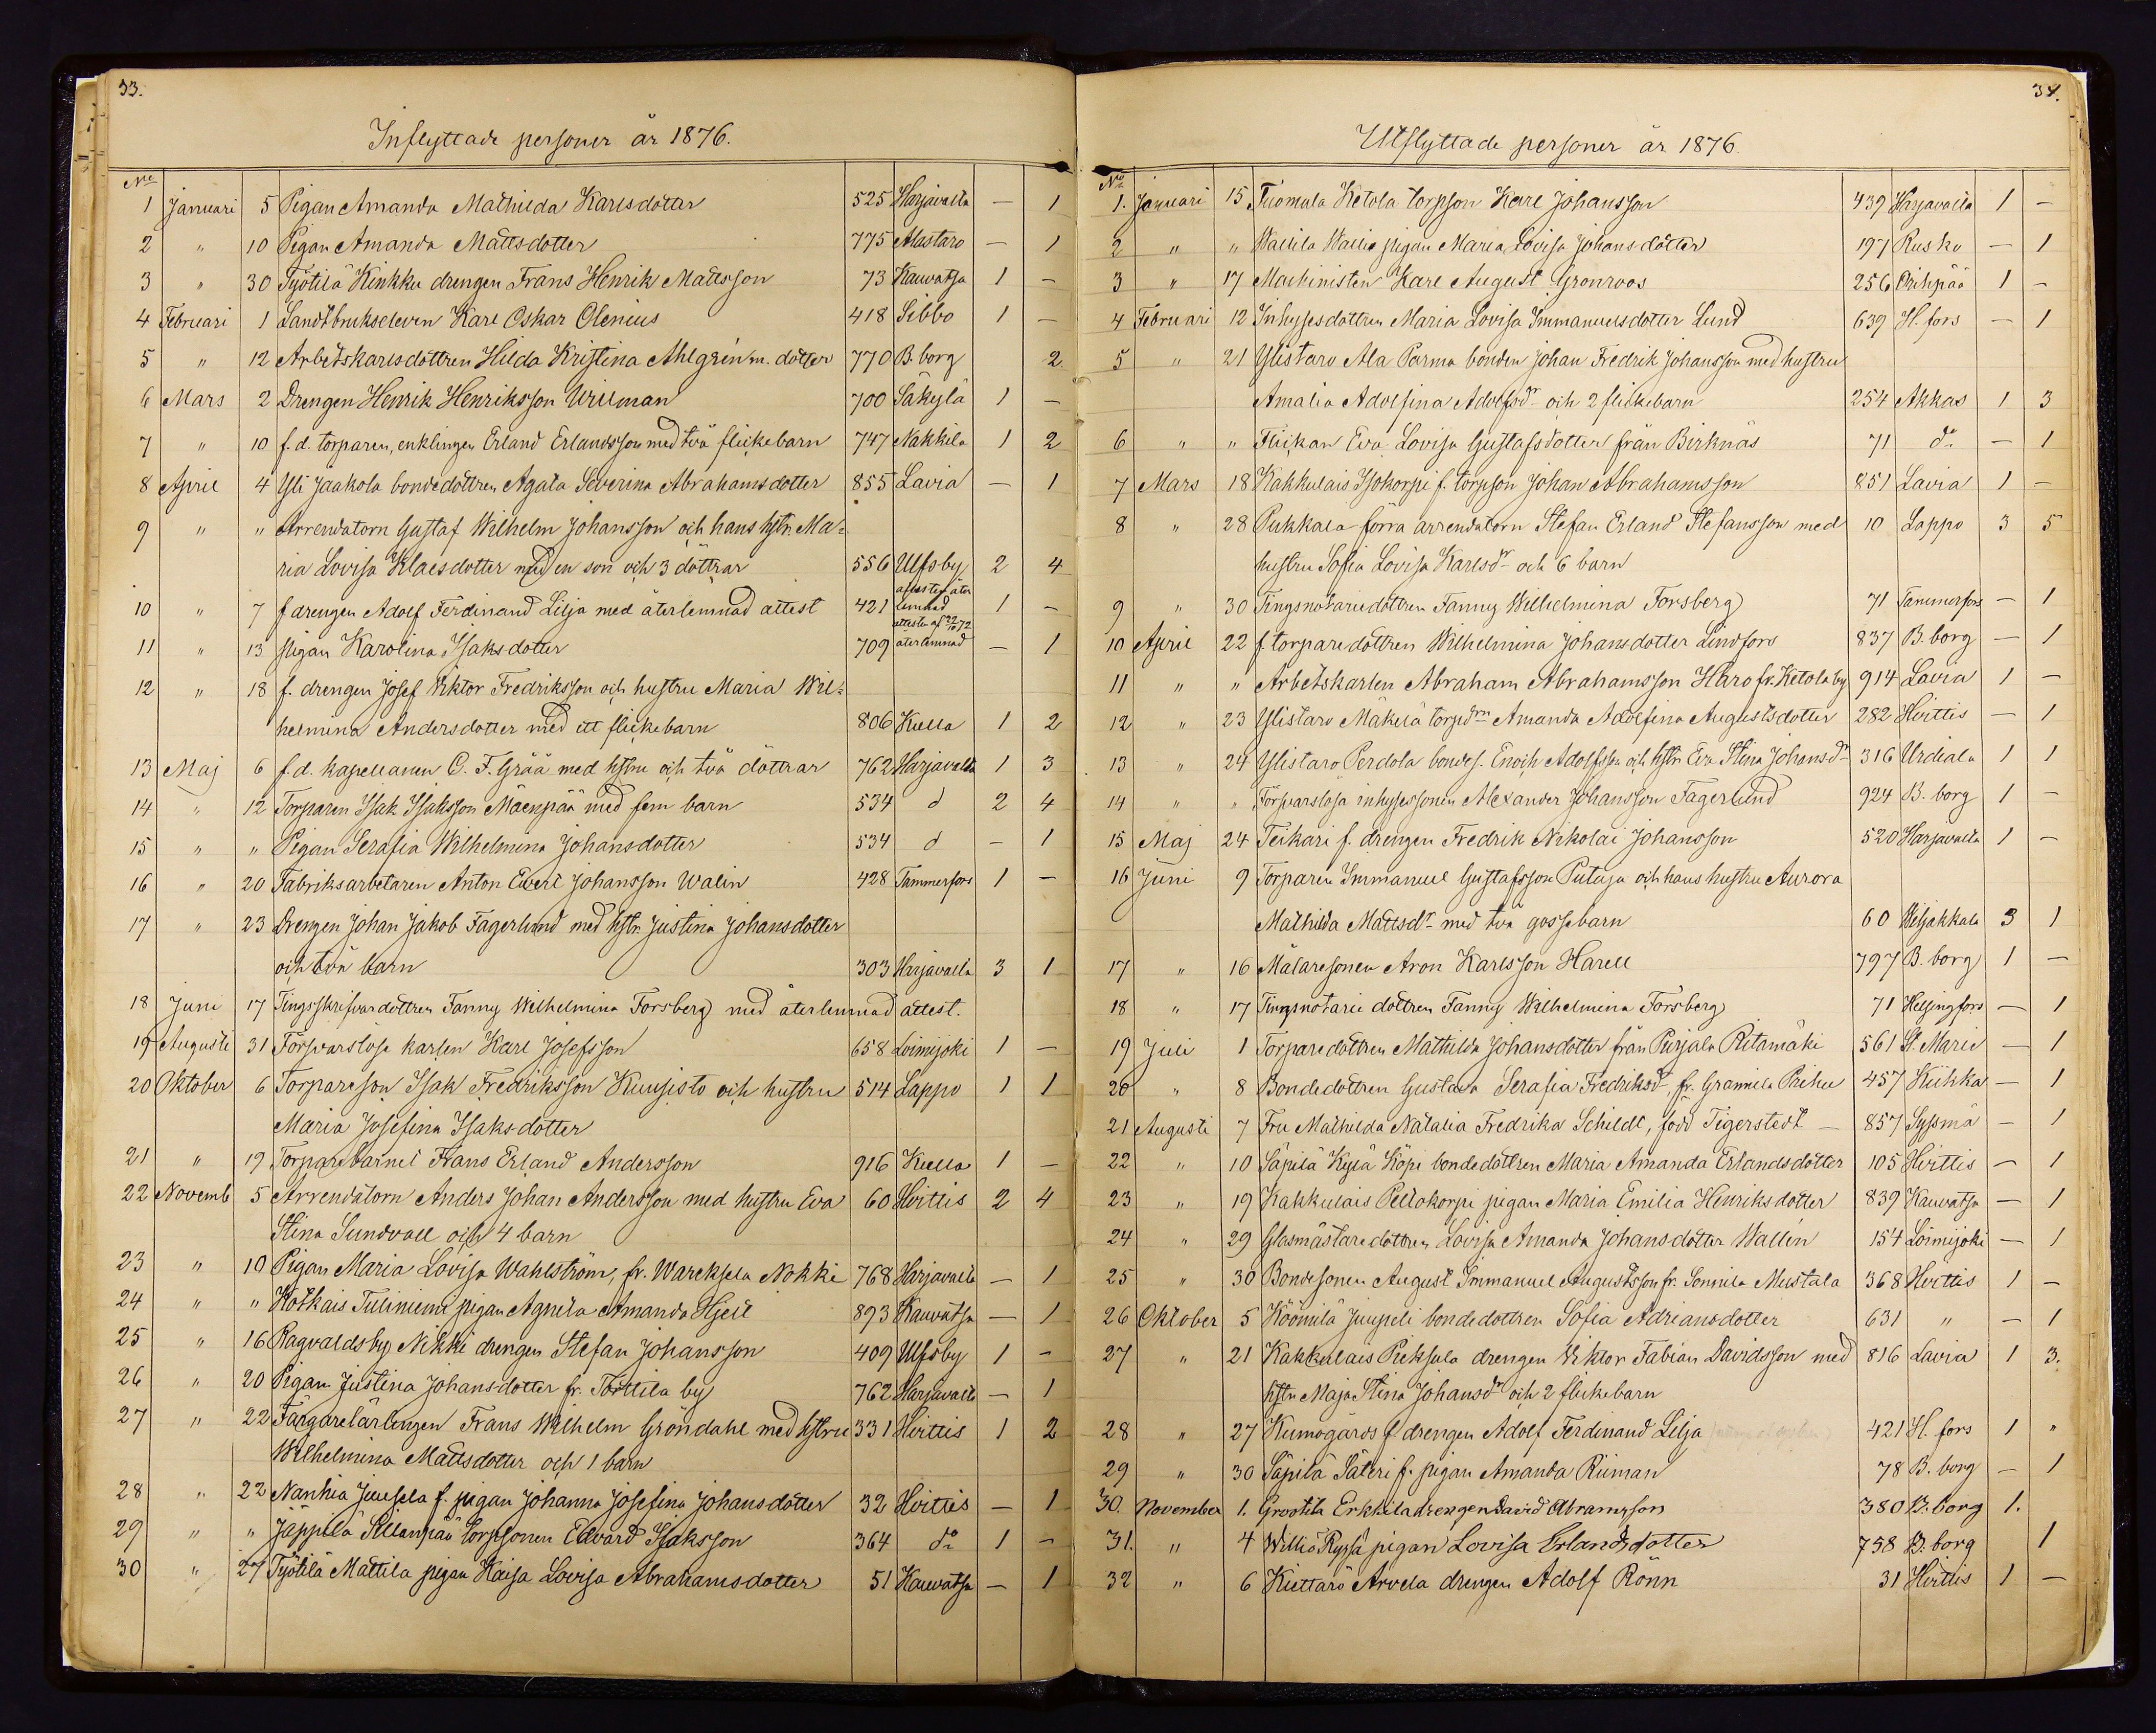 33.
Inflyttade personer år 1876.
No
1 Januari 5 Pigan Amanda Mathilda Karlsdotter 525 Harjavalta — 1
2 " 10 Pigan Amanda Mattsdotter 775 Alastaro — 1
3 " 30 Työtilä Kinkku drengen Frans Henrik Mattsson 73 Kauvatsa 1 —
4 Februari 1 Landtbrukseleven Karl Oskar Olenius 418 Sibbo 1 —
5 " 12 Arbetskarlsdottren Hilda Kristina Ahlgrén m. dotter 770 B. borg 2
6 Mars 2 Drengen Henrik Henriksson Willman 700 Säkylä 1 —
7 " 10 f. d. torparen, enklingen Erland Erlandsson med två flickebarn 747 Nakkila 1 2
8 April 4 Yli Jaakola bondedottren Agata Severina Abrahamsdotter 855 Lavia — 1
9 " " Arrendatorn Gustaf Wilhelm Johansson och hans hstr. Ma-
ria Lovisa Klaesdotter med en son och 3 döttrar 556 Ulfsby 2 4
10 " 7 f drengen Adolf Ferdinand Lilja med återlemnad attest 421 attesten åter lemnad 1 —
11 " 13 pigan Karolina Isaksdotter 709 attesten af 22/10 72 återlemnad — 1
12 " 18 f. drengen Josef Viktor Fredriksson och hustru Maria Wil-
helmina Andersdotter med ett flickebarn 806 Kiella 1 2
13 Maj 6 f. d. kapellanen C. F. Grää med hstru och två döttrar 762 Harjavalta 1 3
14 " 12 Torparen Isak Isaksson Mäenpää med fem barn 534 d 2 4
15 " " Pigan Serafia Wilhelmina Johansdotter 534 d — 1
16 " 20 Fabriksarbetaren Anton Evert Johansson Walin 428 Tammerfors 1 —
17 " 23 Drengen Johan Jakob Fagerlund med hstr. Justina Johansdotter
och två barn 303 Harjavalta 3 1
18 Juni 17 Tingsskrifvardottren Fanny Wilhelmina Forsberg med återlemnad attest.
19 Augusti 31 Försvarslöse karlen Karl Josefsson 658 Loimijoki 1 —
20 Oktober 6 Torpareson Isak Fredriksson Kuusisto och hustru 514 Lappo 1 1
Maria Josefina Isaksdotter
21 " 19 Torparebarnet Frans Erland Andersson 916 Kiella 1 —
22 Novemb 5 Arrendatorn Anders Johan Andersson med hustru Eva 60 Hvittis 2 4
Stina Sundvall och 4 barn
23 " 10 Pigan Maria Lovisa Wahlström, fr. Wareksela Nokki 768 Harjavalta — 1
24 " " Kotkais Tuliniemi pigan Agnita Amanda Hjelt 893 Kauvatsa — 1
25 " 16 Ragvaldsby Nikki drengen Stefan Johansson 409 Ulfsby 1 —
26 " 20 Pigan Justina Johansdotter fr. Torttila by 762 Harjavalta — 1
27 " 22 Färgarelärlingen Frans Wilhelm Gröndahl med hstru 331 Hvittis 1 2
Wilhelmina Mattsdotter och 1 barn
28 " 22 Nanhia Juusela f. pigan Johanna Josefina Johansdotter 32 Hvittis — 1
29 " " Jäppilä Sillanpää torpsonen Edvard Isaksson 364 do 1 —
30 " 27 Työtilä Mattila pigan Kaisa Lovisa Abrahamsdotter 51 Kauvatsa — 1
34.
Utflyttade personer år 1876.
No
1. Januari 15 Tuomula Ketola torpson Karl Johansson 439 Harjavalta 1 —
2 " " Wallila Wallie pigan Maria Lovisa Johansdotter 197 Rusko — 1
3 " 17 Maskinisten Karl August Grönroos 256 1 —
4 Februari 12 Inhysesdottren Maria Lovisa Immanuelsdotter Lund 639 H. fors — 1
5 " 21 Ylistaro Ala Parma bonden Johan Fredrik Johansson med hustru
Amalia Adolfina Adolfsdr och 2 flickebarn 254 Akkas 1 3
6 " " Flickan Eva Lovisa Gustafsdotter från Birknäs 71 do — 1
7 Mars 18 Kakkulais Isokorpi f. torpson Johan Abrahamsson 851 Lavia 1 —
8 " 28 Pukkala förra arrendatorn Stefan Erland Stefansson med 10 Lappo 3 5
hustru Sofia Lovisa Karlsdr och 6 barn
9 " 30 Tingsnotariedottren Fanny Wilhelmina Forsberg 71 Tammerfors — 1
10 April 22 f. torparedottren Wilhelmina Johansdotter Lindfors 837 B. borg — 1
11 " " Arbetskarlen Abraham Abrahamsson Haro fr. Ketola by 914 Lavia 1 —
12 " 23 Ylistaro Mäkelä torpdrn Amanda Adolfina Augustsdotter 282 Hvittis — 1
13 " 24 Ylistaro Perdola bondes. Enoch Adolfsson och hstr. Eva Stina Johansdr 316 Urdiala 1 1
14 " " Försvarslösa inhysessonen Alexander Johansson Fagerlund 924 B. borg 1 —
15 Maj 24 Teikari f. drengen Fredrik Nikolai Johansson 520 Harjavalta 1 —
16 Juni 9 Torparen Immanuel Gustafsson Putaja och hans hustru Aurora
Mathilda Mattsdr med två gossebarn 60 Viljakkala 3 1
17 " 16 Målaresonen Aron Karlsson Harell 797 B. borg 1 —
18 " 17 Tingsnotarie dottren Fanny Wilhelmina Forsberg 71 Helsingfors — 1
19 Juli 1 Torparedottren Mathilda Johansdotter från Purjala Ritamäki 561 St. Marie — 1
20 " 8 Bondedottren Gustava Serafia Fredriksdr, fr. Grannila Prihu 457 Kiikka — 1
21 Augusti 7 Fru Mathilda Natalia Fredrika Schildt, född Tigerstedt — 857 Sysmä — 1
22 " 10 Säpilä Kylä Köpi bondedottren Maria Amanda Erlandsdotter 105 Hvittis — 1
23 " 19 Kakkulais Peltokorpi pigan Maria Emilia Henriksdotter 839 Kauvatsa — 1
24 " 29 Glasmästaredottren Lovisa Amanda Johansdotter Wallin 154 Loimijoki — 1
25 " 30 Bondesonen August Immanuel Augustsson fr. Sonnila Mustala 368 Hvittis 1 —
26 Oktober 5 Köömilä Juupeli bondedottren Sofia Adriansdotter 631 " — 1
27 " 21 Kakkulais Pieksala drengen Viktor Fabian Davidsson med 816 Lavia 1 3.
hstru Maja Stina Johansdr och 2 flickebarn
28 " 27 Kumogårds f drengen Adolf Ferdinand Lilja 421 H. fors 1 "
29 " 30 Säpilä Säteri f. pigan Amanda Riiman 78 B. borg — 1
30. November 1. Grootila Erkkila drengen David Abramsson 380 B. borg 1.
31. " 4 Williö Ryssä pigan Lovisa Erlandsdotter 758 B. borg 1
32 " 6 Kiettarö Arvela drengen Adolf Rönn 31 Hvittis 1 —